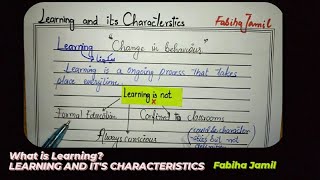 Learning and its Characterstics
Fabiha Jamil
Learning "Change in behaviour"
سیکھنا
Learning is a ongoing process that takes
place everytime.
Learning is not
Formal Education
Confined to classrooms
Always conscious
What is Learning?
LEARNING AND IT'S CHARACTERISTICS Fabiha Jamil